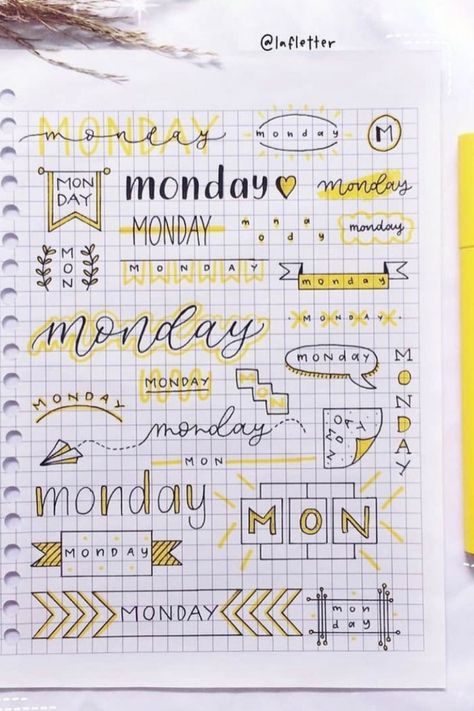 @lafletter
MONDAY
monday
monday
M
MON
DAY
monday
monday
MONDAY
monday
monday
MON
MONDAY
monday
monday
MONDAY
MONDAY
monday
MONDAY
MON
MONDAY
monday
MONDAY
MON
monday
MON
MONDAY
MONDAY
mon
day